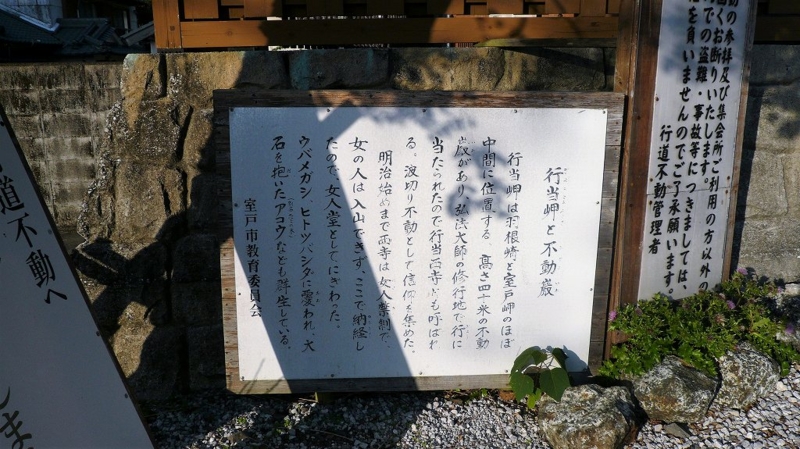 行当岬と不動巌
行当岬は羽根崎と室戸岬のほぼ
中間に位置する。高さ四十米の不動
巌があり、弘法大師の修行地で行に
当たられたので行当西寺とも呼ばれ
る。波切り不動として信仰を集めた。
明治始めまで両寺は女人禁制で、
女の人は入山できず、ここで納経し
たので、女人堂としてにぎわった。
ウバメガシ、ヒトツバシダに覆われ、大
石を抱いたアコウなども群生している。
室戸市教育委員会
動の参拝及び集会所ご利用の方以外の
固くお断りいたします。
での盗難・事故等につきましては、
任を負いませんのでご了承願います。
行道不動管理者
道不動へ
しま